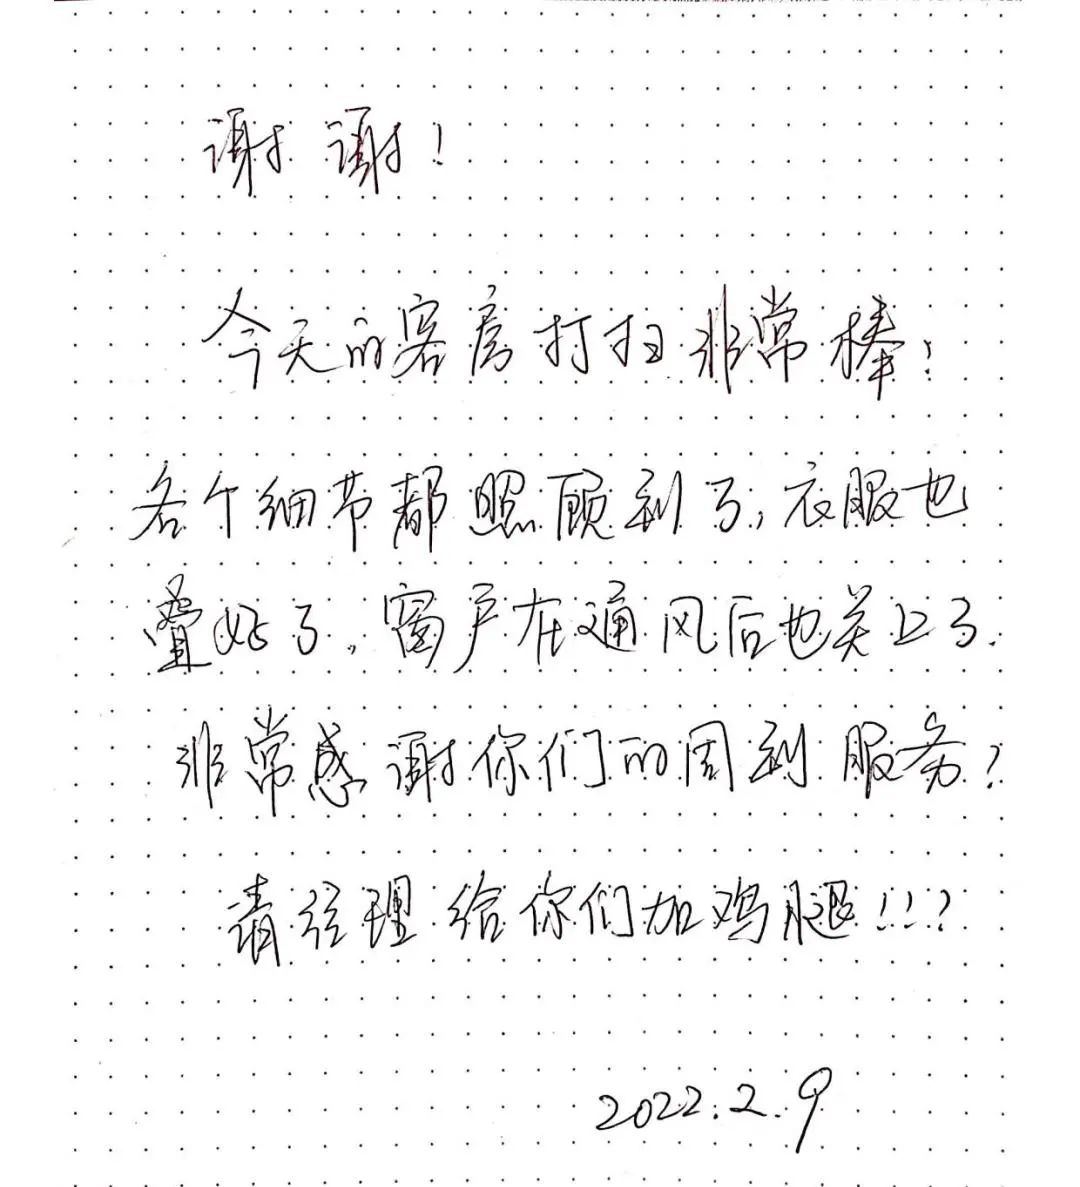 谢谢!
今天的客房打扫非常棒!
各个细节都照顾到了,衣服也
叠好了,窗户在通风后也关上了.
非常感谢你们的周到服务!
请经理给你们加鸡腿!!!!
2022.2.9